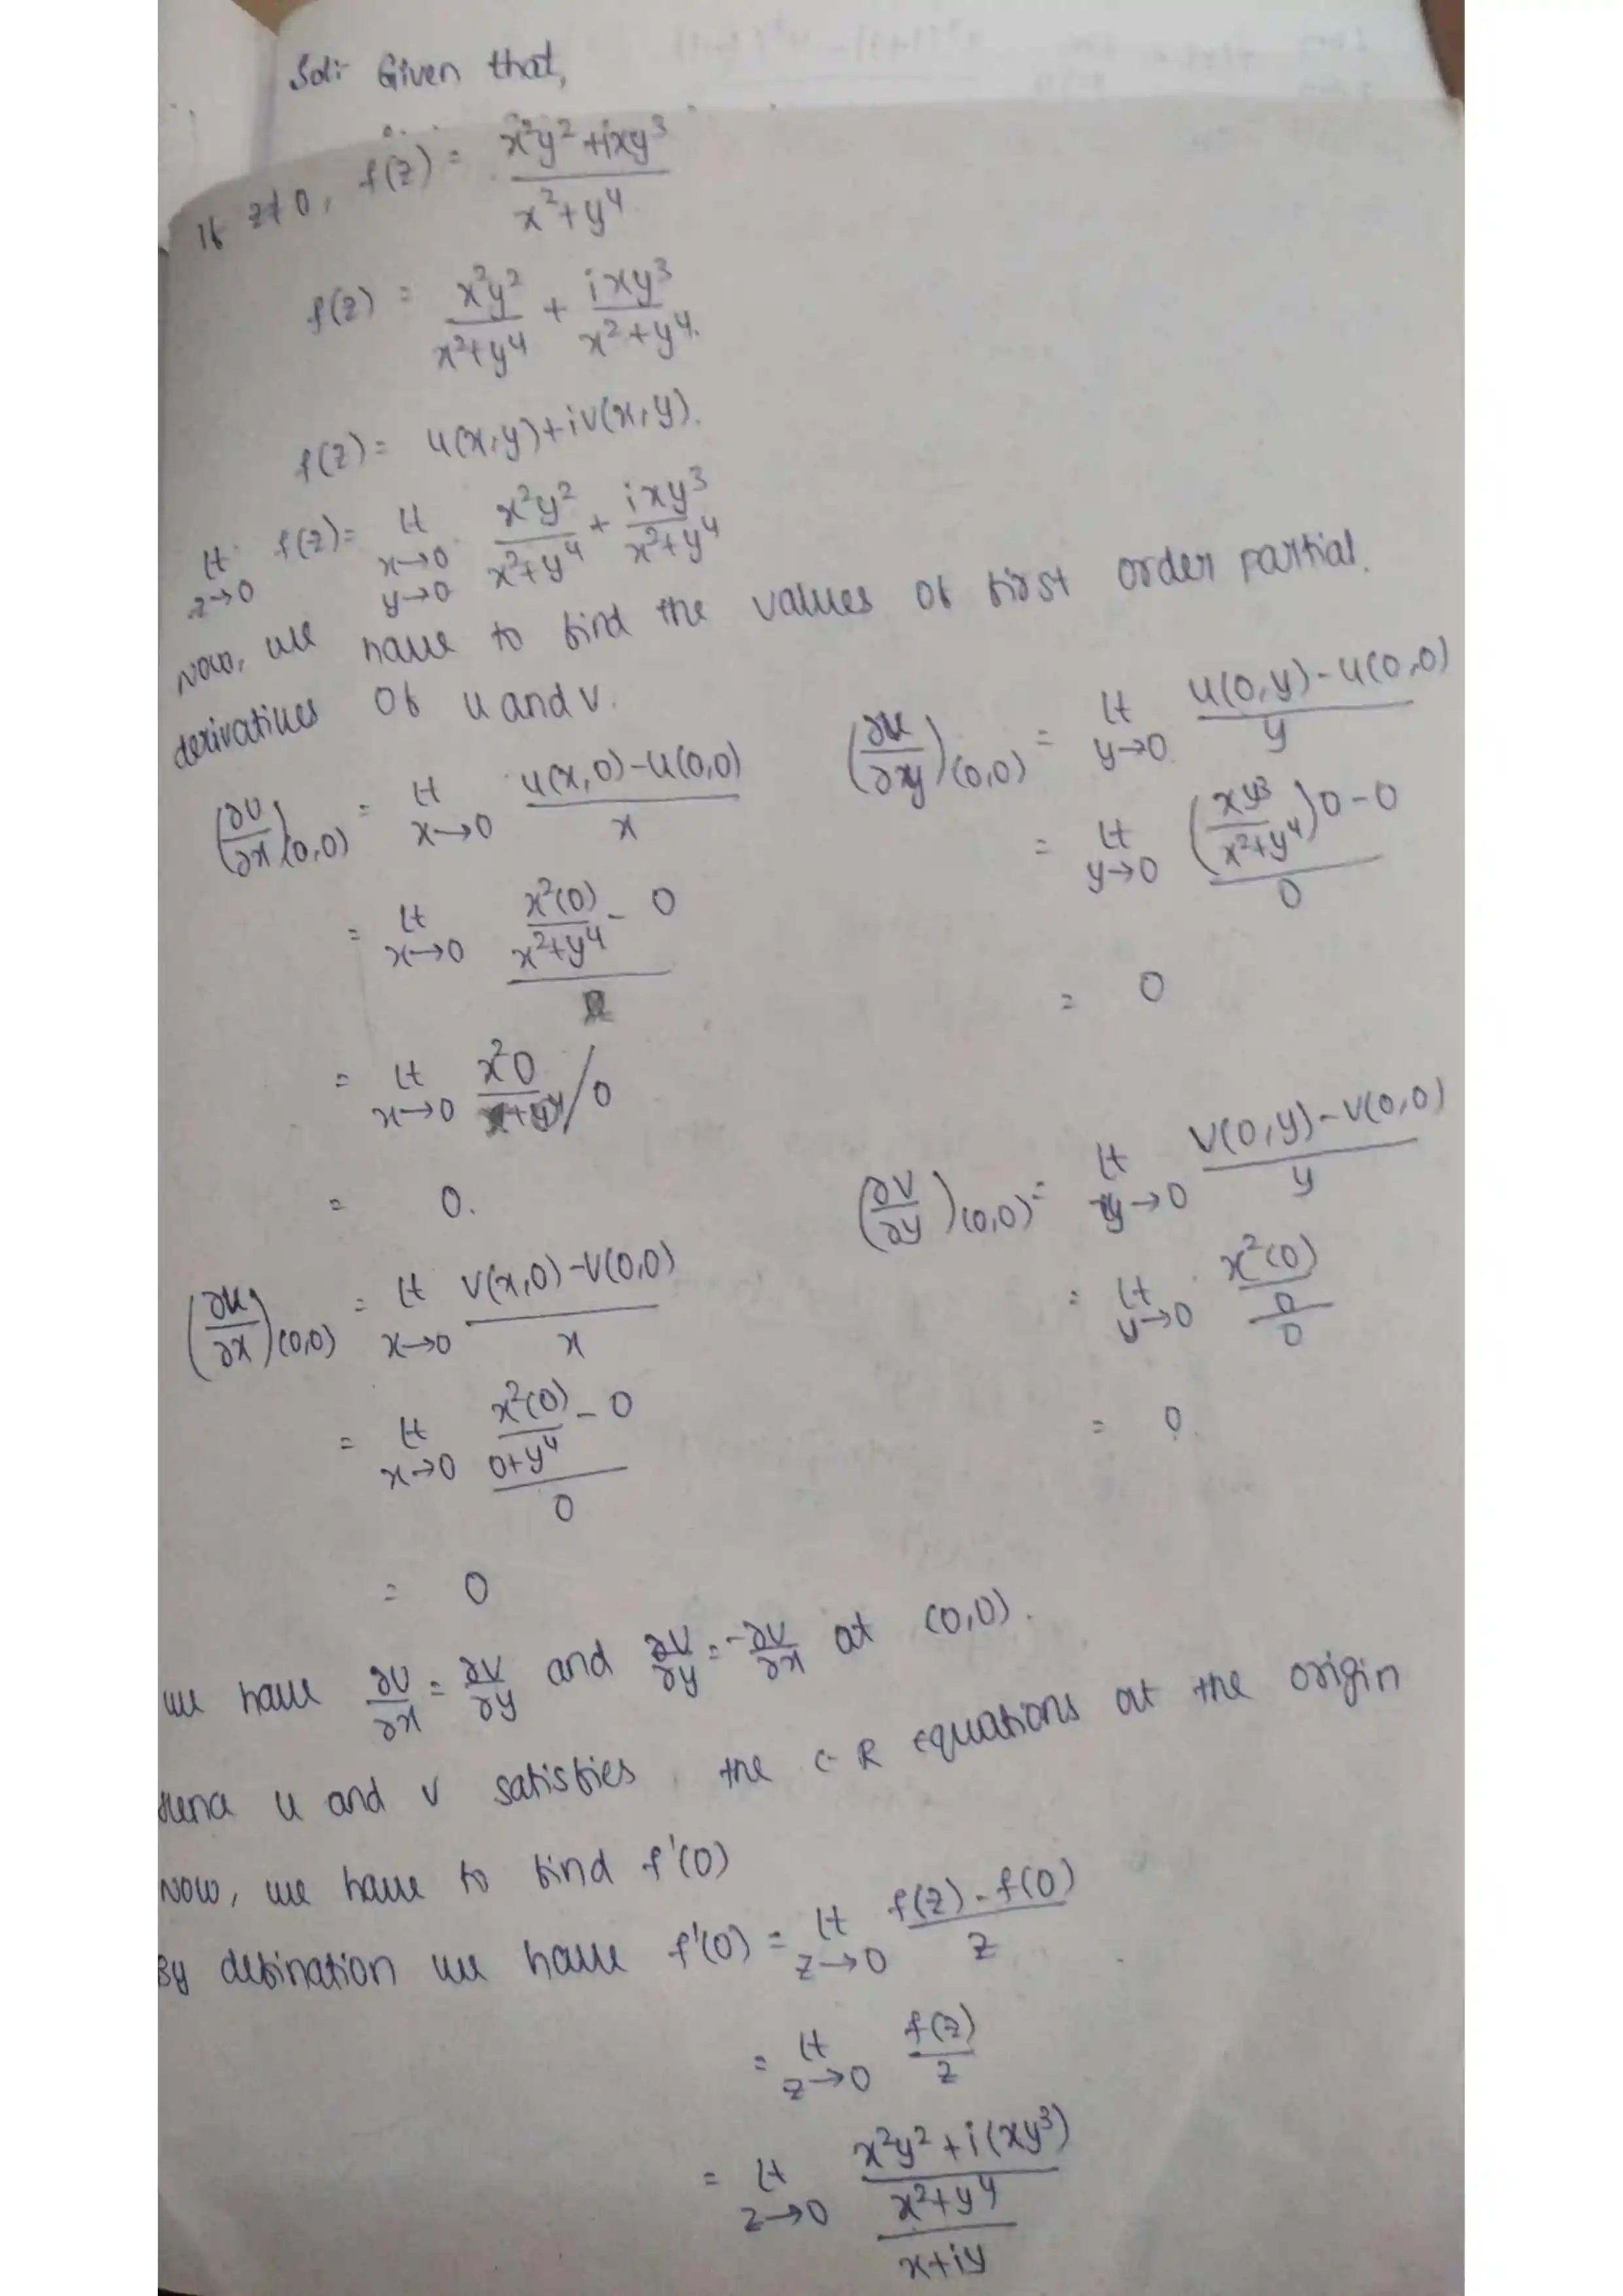 Sol:- Given that,
If z≠0, f(z) = x²y²+ixy³ / x²+y⁴
f(z) = x²y² / x²+y⁴ + ixy³ / x²+y⁴.
f(z) = u(x,y)+iv(x,y).
lt z→0 f(z) = lt x→0 y→0 x²y² / x²+y⁴ + ixy³ / x²+y⁴
Now, we have to find the values of first order partial.
derivatives of u and v.
(∂u/∂x)(0,0) = lt x→0 u(x,0)-u(0,0) / x
= lt x→0 x²(0) / x²+y⁴ - 0
= lt x→0 x²0 / x+y⁴ / 0
= 0.
(∂u/∂x)(0,0) = lt x→0 v(x,0)-v(0,0) / x
= lt x→0 x²(0) / 0+y⁴ - 0 / 0
= 0
(∂u/∂y)(0,0) = lt y→0 u(0,y)-u(0,0) / y
= lt y→0 (xy³ / x²+y⁴)0-0 / 0
= 0
(∂v/∂y)(0,0) = lt y→0 v(0,y)-v(0,0) / y
= lt y→0 x²(0) / 0 / 0
= 0.
we have ∂u/∂x = ∂v/∂y and ∂u/∂y = -∂v/∂x at (0,0).
Hence u and v satisfies the C-R equations at the origin
Now, we have to find f'(0)
By defination we have f'(0) = lt z→0 f(z)-f(0) / z
= lt z→0 f(z) / z
= lt z→0 x²y²+i(xy³) / x²+y⁴ / x+iy